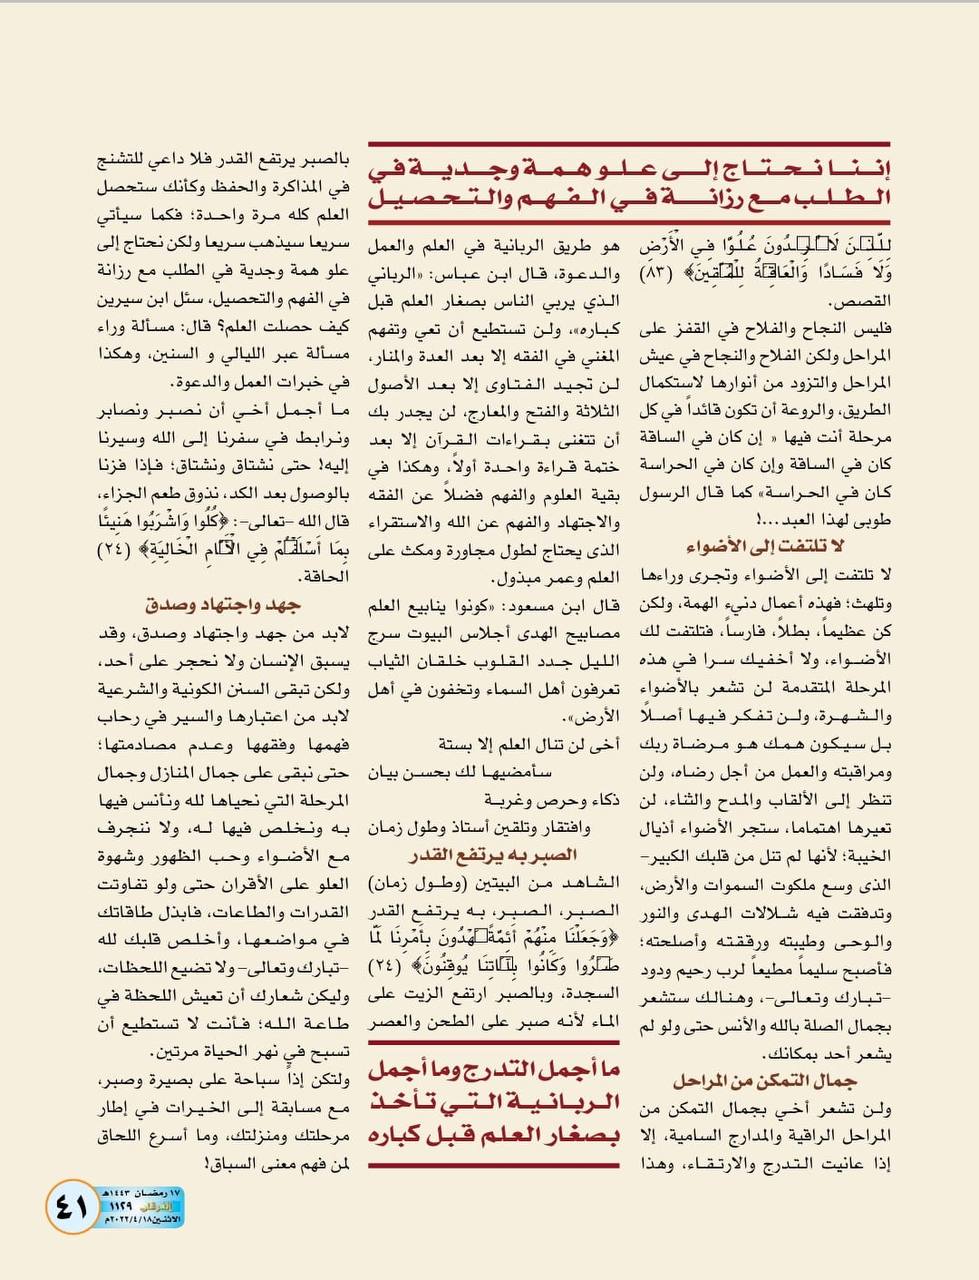 إننا نحتاج إلى علو همة وجدية في
الطلب مع رزانة في الفهم والتحصيل
عُلُوًّا فِي الْأَرْضِ
وَلَا فَسَادًا وَالْعَاقِبَةُ (٨٣)
القصص.
فليس النجاح والفلاح في القفز على
المراحل ولكن الفلاح والنجاح في عيش
المراحل والتزود من أنوارها لاستكمال
الطريق، والروعة أن تكون قائداً في كل
مرحلة أنت فيها « إن كان في الساقة
كان في الساقة وإن كان في الحراسة
كان في الحراسة» كما قال الرسول
طوبى لهذا العبد...!
لا تلتفت إلى الأضواء
لا تلتفت إلى الأضواء وتجرى وراءها
وتلهث؛ فهذه أعمال دنيء الهمة، ولكن
كن عظيماً، بطلاً، فارساً، فتلتفت لك
الأضواء، ولا أخفيك سرا في هذه
المرحلة المتقدمة لن تشعر بالأضواء
والشهرة، ولن تفكر فيها أصلاً
بل سيكون همك هو مرضاة ربك
ومراقبته والعمل من أجل رضاه، ولن
تنظر إلى الألقاب والمدح والثناء، لن
تعيرها اهتماما، ستجر الأضواء أذيال
الخيبة؛ لأنها لم تنل من قلبك الكبير-
الذى وسع ملكوت السموات والأرض،
وتدفقت فيه شلالات الهدى والنور
والوحى وطيبته ورققته وأصلحته؛
فأصبح سليماً مطيعاً لرب رحيم ودود
-تبارك وتعالى-، وهنالك ستشعر
بجمال الصلة بالله والأنس حتى ولو لم
يشعر أحد بمكانك.
جمال التمكن من المراحل
ولن تشعر أخي بجمال التمكن من
المراحل الراقية والمدارج السامية، إلا
إذا عانيت التدرج والارتقاء، وهذا
هو طريق الربانية في العلم والعمل
والدعوة، قال ابن عباس: «الرباني
الذي يربي الناس بصغار العلم قبل
كباره»، ولن تستطيع أن تعي وتفهم
المغني في الفقه إلا بعد العدة والمنار،
لن تجيد الفتاوى إلا بعد الأصول
الثلاثة والفتح والمعارج، لن يجدر بك
أن تتغنى بقراءات القرآن إلا بعد
ختمة قراءة واحدة أولاً، وهكذا في
بقية العلوم والفهم فضلاً عن الفقه
والاجتهاد والفهم عن الله والاستقراء
الذى يحتاج لطول مجاورة ومكث على
العلم وعمر مبذول.
قال ابن مسعود: «كونوا ينابيع العلم
مصابيح الهدى أجلاس البيوت سرج
الليل جدد القلوب خلقان الثياب
تعرفون أهل السماء وتخفون في أهل
الأرض».
أخى لن تنال العلم إلا بستة
سأمضيها لك بحسن بيان
ذكاء وحرص وغربة
وافتقار وتلقين أستاذ وطول زمان
الصبر به يرتفع القدر
الشاهد من البيتين (وطول زمان)
الصبر، الصبر، به يرتفع القدر
﴿وَجَعَلْنَا مِنْهُمْ أَئِمَّةً بِأَمْرِنَا لَمَّا
وَكَانُوا يُوقِنُونَ﴾ (٢٤)
السجدة، وبالصبر ارتفع الزيت على
الماء لأنه صبر على الطحن والعصر
ما أجمل التدرج وما أجمل
الربانية التي تأخذ
بصغار العلم قبل كباره
بالصبر يرتفع القدر فلا داعي للتشنج
في المذاكرة والحفظ وكأنك ستحصل
العلم كله مرة واحدة؛ فكما سيأتي
سريعا سيذهب سريعا ولكن نحتاج إلى
علو همة وجدية في الطلب مع رزانة
في الفهم والتحصيل، سئل ابن سيرين
كيف حصلت العلم؟ قال: مسألة وراء
مسألة عبر الليالي و السنين، وهكذا
في خبرات العمل والدعوة.
ما أجمل أخي أن نصبر ونصابر
ونرابط في سفرنا إلى الله وسيرنا
إليه! حتى نشتاق ونشتاق؛ فإذا فزنا
بالوصول بعد الكد، نذوق طعم الجزاء،
قال الله -تعالى-: ﴿كُلُوا وَاشْرَبُوا هَنِيئًا
بِمَا فِي الْخَالِيَةِ﴾ (٢٤)
الحاقة.
جهد واجتهاد وصدق
لابد من جهد واجتهاد وصدق، وقد
يسبق الإنسان ولا نحجر على أحد،
ولكن تبقى السنن الكونية والشرعية
لابد من اعتبارها والسير في رحاب
فهمها وفقهها وعدم مصادمتها؛
حتى نبقى على جمال المنازل وجمال
المرحلة التي نحياها لله ونأنس فيها
به ونخلص فيها له، ولا ننجرف
مع الأضواء وحب الظهور وشهوة
العلو على الأقران حتى ولو تفاوتت
القدرات والطاعات، فابذل طاقاتك
في مواضعها، وأخلص قلبك لله
-تبارك وتعالى- ولا تضيع اللحظات،
وليكن شعارك أن تعيش اللحظة في
طاعة الله؛ فأنت لا تستطيع أن
تسبح في نهر الحياة مرتين.
ولتكن إذاً سباحة على بصيرة وصبر،
مع مسابقة إلى الخيرات في إطار
مرحلتك ومنزلتك، وما أسرع اللحاق
لمن فهم معنى السباق!
١٧ رمضان ١٤٤٣هـ
الفرقان ١١٢٩
الاثنين ٢٠٢٢/٤/١٨م
٤١